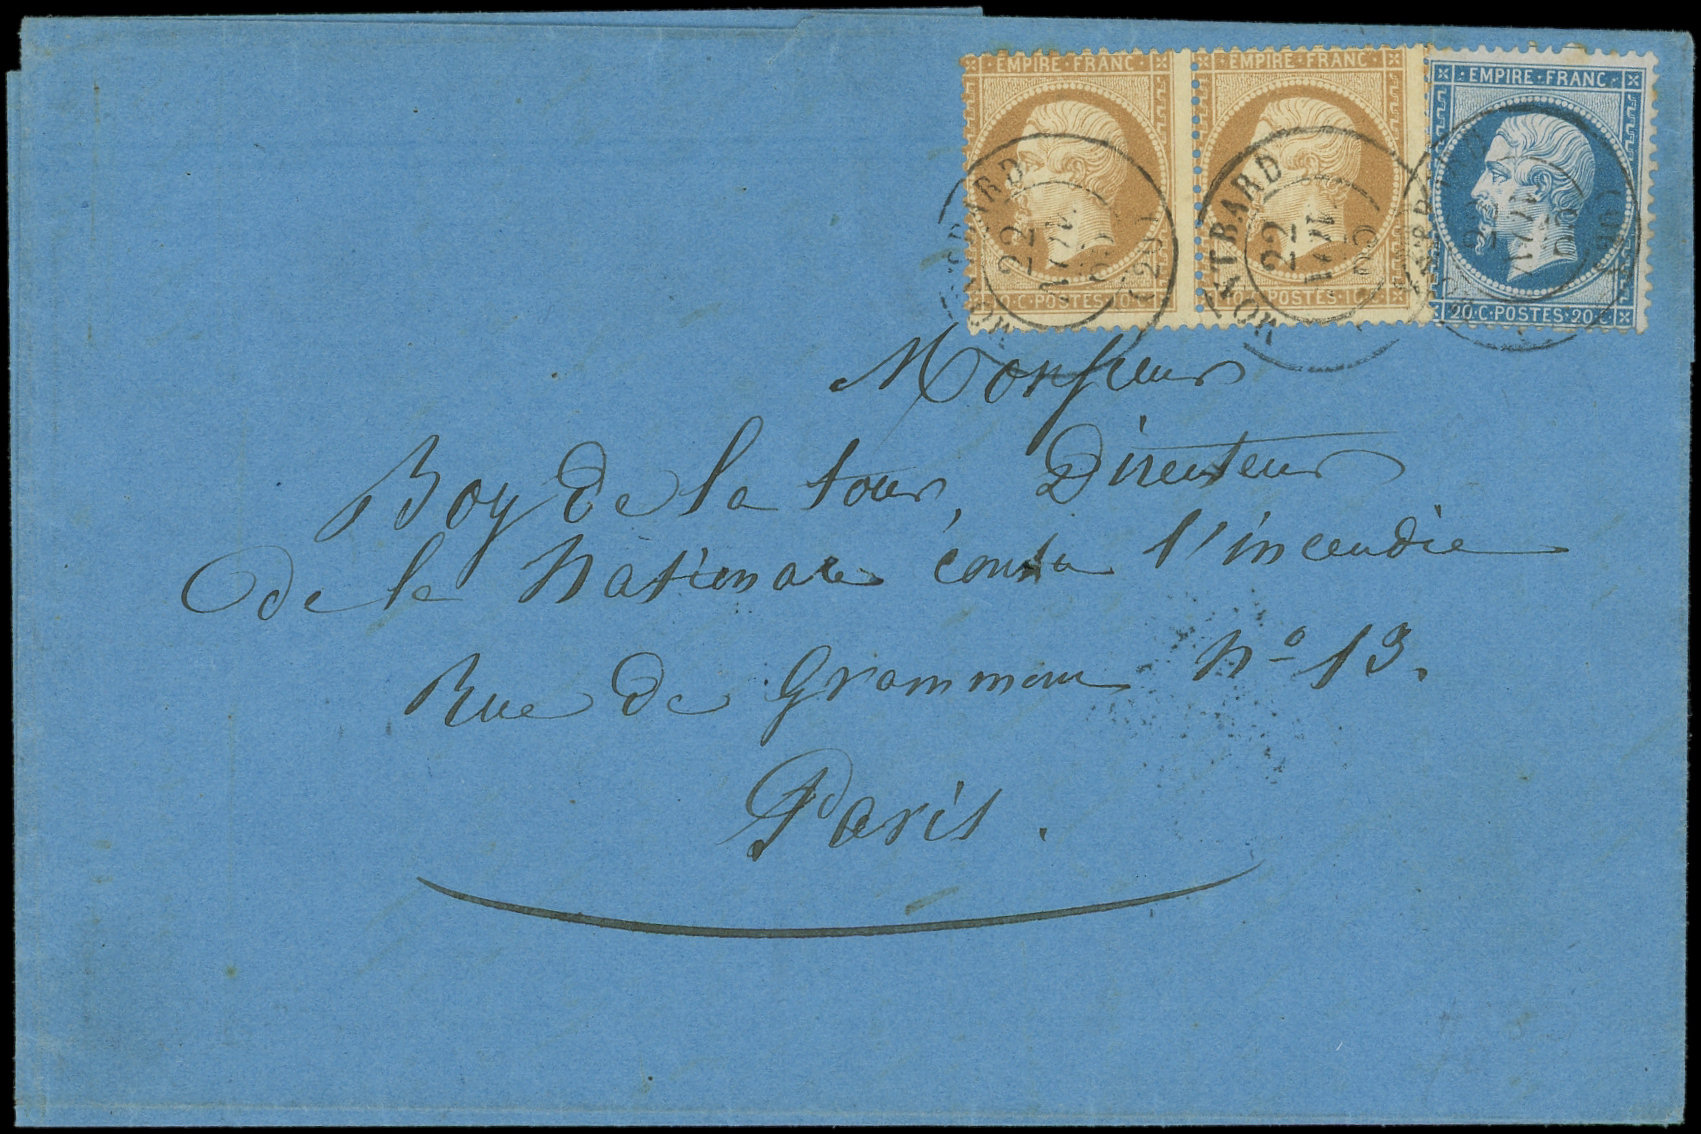 EMPIRE·FRANC
EMPIRE·FRANC
EMPIRE·FRANC
10·C·POSTES·10·C
10·C·POSTES·10·C
20·C·POSTES·20·C
MONTBARD
22
(20)
MONTBARD
22
Monsieur
Boy de la tour, Directeur
de la Nationale contre l'incendie
Rue de Grammont No 13.
Paris.